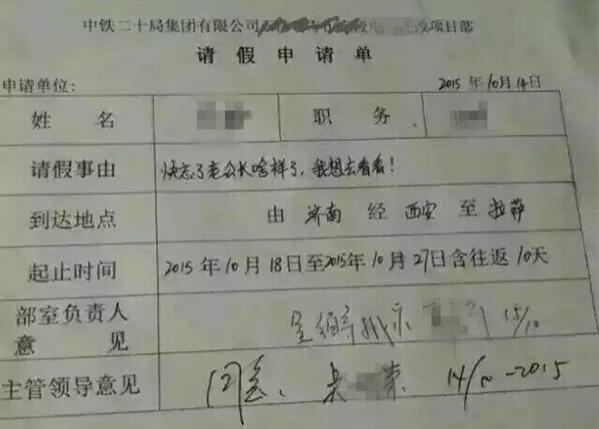 中铁二十局集团有限公司 项目部
请假申请单
申请单位: 2015年10月14日
姓名 职务
请假事由 快忘了老公长啥样了,我想去看看!
到达地点 由 济南 经 西安 至 拉萨
起止时间 2015年10月18日至2015年10月27日含往返10天
部室负责人
意见 呈 批示 15/10
主管领导意见 同意、 14/10-2015